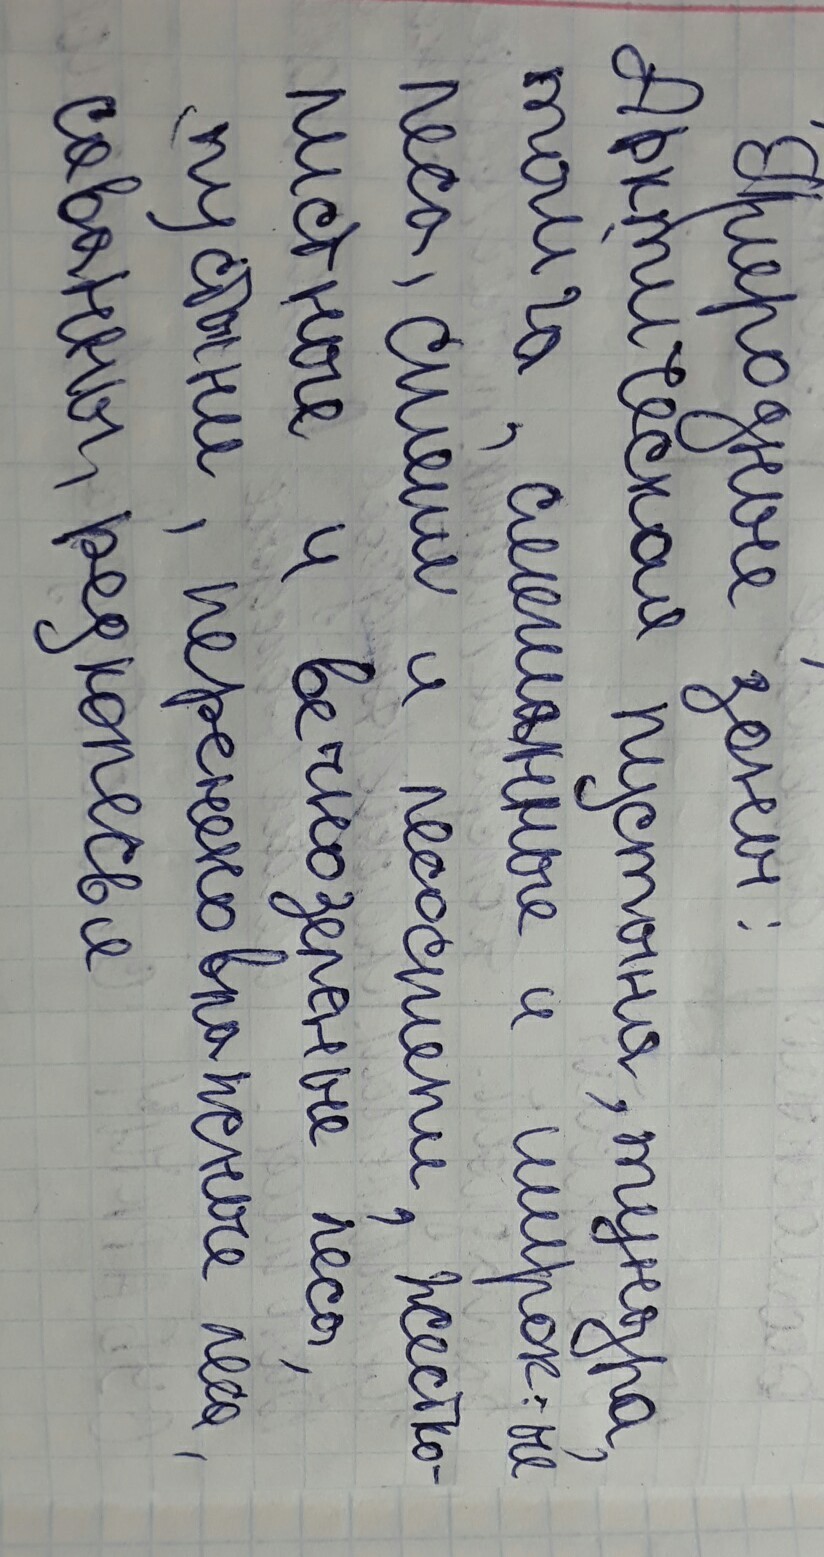 Природные зоны:
Арктическая пустыня, тундра,
тайга, смешанные и широк-ые
леса, степи и лесостепи, жестко-
листные и вечнозеленые леса,
пустыни, переменновлажные леса,
саванны, редколесья